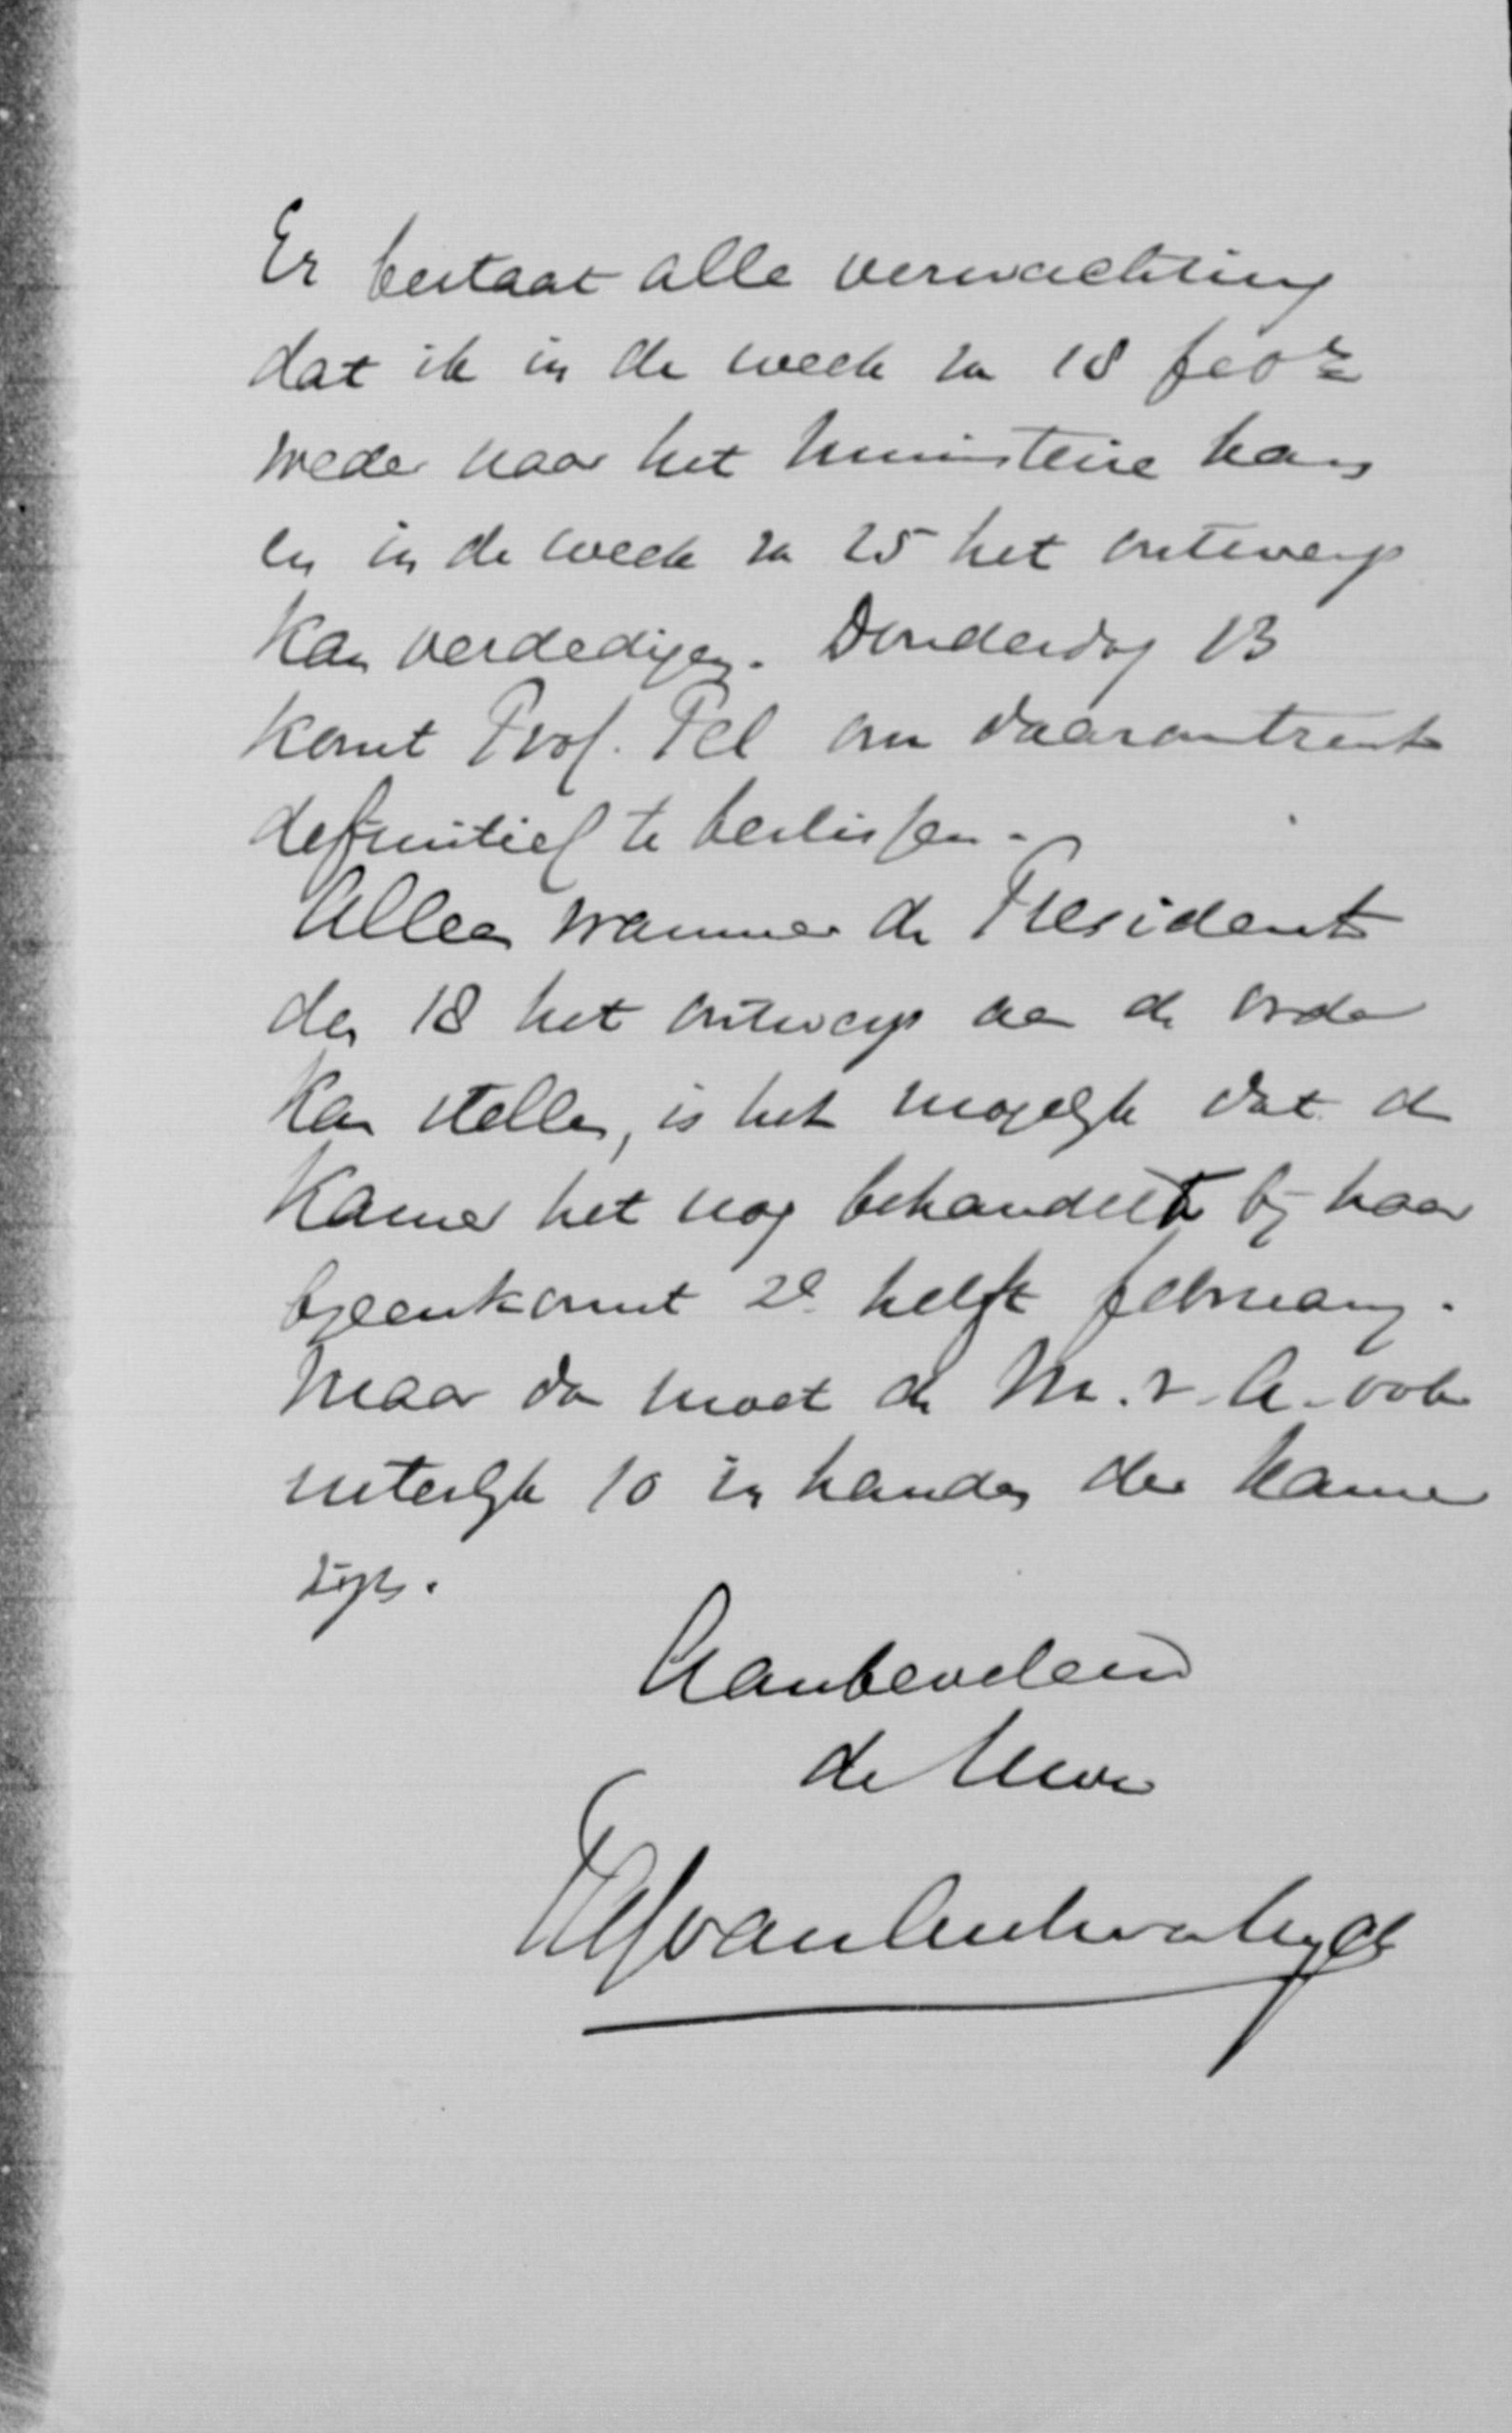 Er bestaat alle verwachting
dat ik in de week na 18 febr
weder naar het Ministerie kan
en in de week na 25 het ontwerp
kan verdedigen. Donderdag 13
komt Prof. Pel om daaromtrent
definitief te beslissen.
Alleen wanneer de President
den 18 het ontwerp aan de orde
kan stellen, is het mogelijk dat de
Kamer het nog behandelt bij haar
bijeenkomst 2e helft februari.
Maar dan moet de M. v. A. ook
uiterlijk 10 in handen der Kamer
zijn.
Aanbevelend
de Uwe